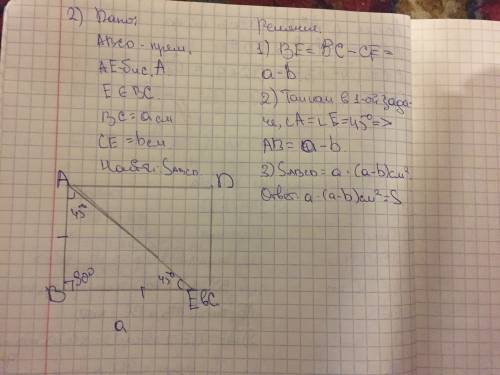 2) Дано:
ABCD - прям.
AE - бис. A
E ∈ BC
BC = a см
CE = b см
Найти: SABCD
Решение.
1) BE = BC - CE =
a-b
2) Так как в 1-ой зада-
че, ∠A = ∠E = 45° =>
AB = a-b
3) SABCD = a · (a-b) см²
Ответ: a · (a-b) см² = S
A
D
45°
90°
45°
B
E
b
C
a